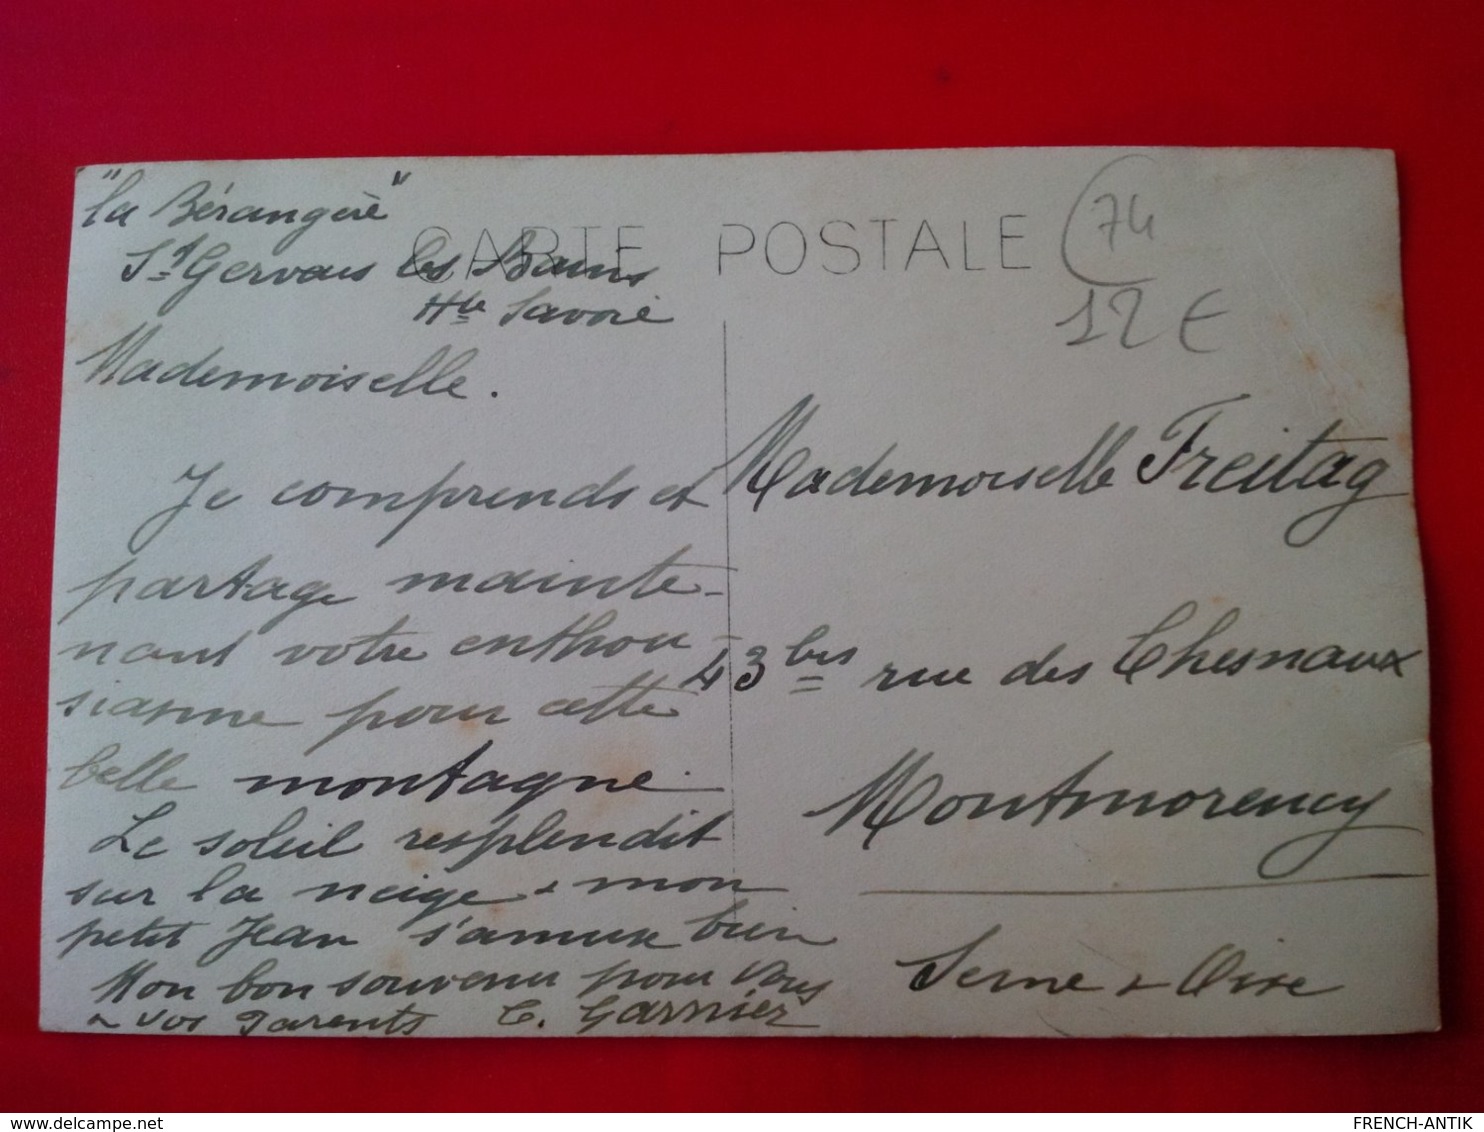 "la Bérangère"
St Gervais les Bains
Hte Savoie
CARTE POSTALE
74
12 €
Mademoiselle.
Je comprends et
partage mainte-
nant votre enthou-
siasme pour cette
belle montagne.
Le soleil resplendit
sur la neige & mon
petit Jean s'amuse bien
Mon bon souvenir pour vous
& vos parents C. Garnier
Mademoiselle Freitag
43 bis rue des Chesnaux
Montmorency
Seine & Oise
FRENCH-ANTIK
delcampe.net